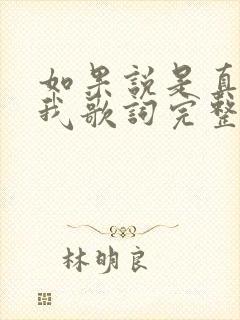 如果說是真
我歌詞完整
林明良